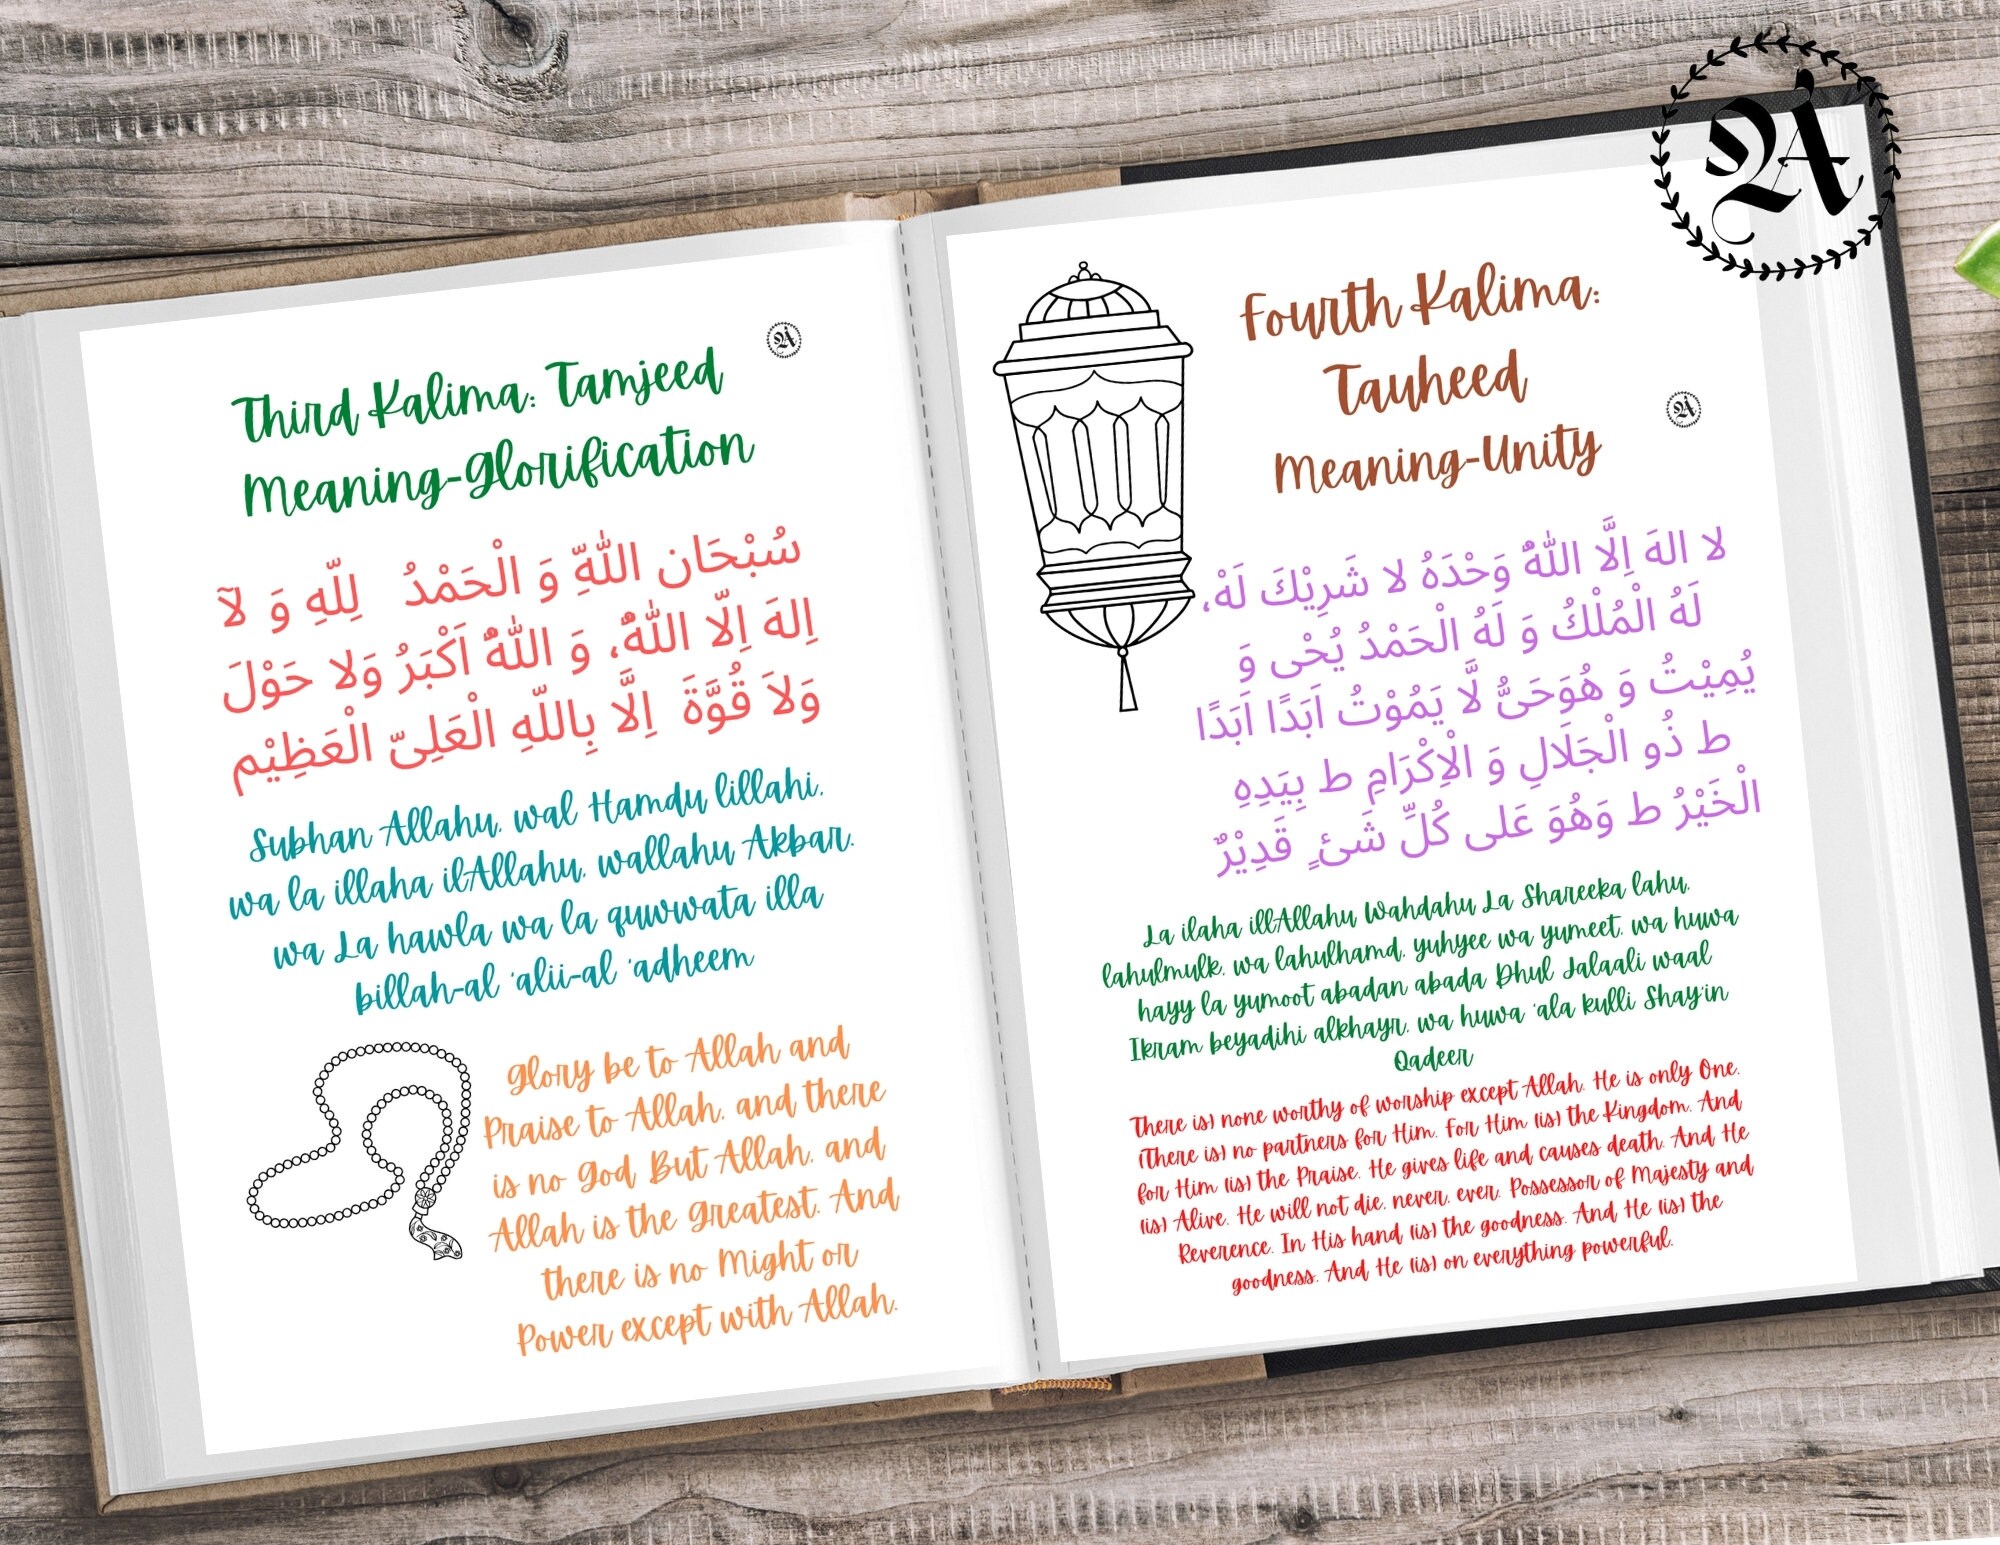 Third Kalima: Tamjeed
Meaning-Glorification
سُبْحَان اللّٰهِّ وَ الْحَمْدُ لِلّٰهِ وَ لآ
اِلهَ اِلّا اللّٰهُ، وَ اللّٰهُ اَكْبَرُ وَلا حَوْلَ
وَلاَ قُوَّةَ اِلَّا بِاللّهِ الْعَلِىّ الْعَظِيْم
Subhan Allahu, wal Hamdu lillahi,
wa la illaha ilAllahu, wallahu Akbar.
wa La hawla wa la quwwata illa
billah-al 'alii-al 'adheem
Glory be to Allah and
Praise to Allah, and there
is no God But Allah, and
Allah is the Greatest. And
there is no Might or
Power except with Allah.
Fourth Kalima:
Tauheed
Meaning-Unity
لا الهَ اِلَّا اللّٰهُ وَحْدَهُ لا شَرِيْكَ لَهْ،
لَهُ الْمُلْكُ وَ لَهُ الْحَمْدُ يُحْى وَ
يُمِيْتُ وَ هُوَحَىُّ لَّا يَمُوْتُ اَبَدًا اَبَدًا
ط ذُو الْجَلَالِ وَ الْاِكْرَامِ ط بِيَدِهِ
الْخَيْرُ ط وَهُوَ عَلى كُلِّ شَىْءٍ قَدِيْرٌ
La ilaha illAllahu Wahdahu La Shareeka lahu,
lahulmulk, wa lahulhamd, yuhyee wa yumeet, wa huwa
hayy la yumoot abadan abada Dhul Jalaali waal
Ikram beyadihi alkhayr, wa huwa 'ala kulli Shay'in
Qadeer
There is) none worthy of worship except Allah. He is only One.
(There is) no partners for Him. For Him (is) the Kingdom. And
for Him (is) the Praise. He gives life and causes death. And He
(is) Alive. He will not die, never, ever. Possessor of Majesty and
Reverence. In His hand (is) the goodness. And He (is) the
goodness. And He (is) on everything powerful.